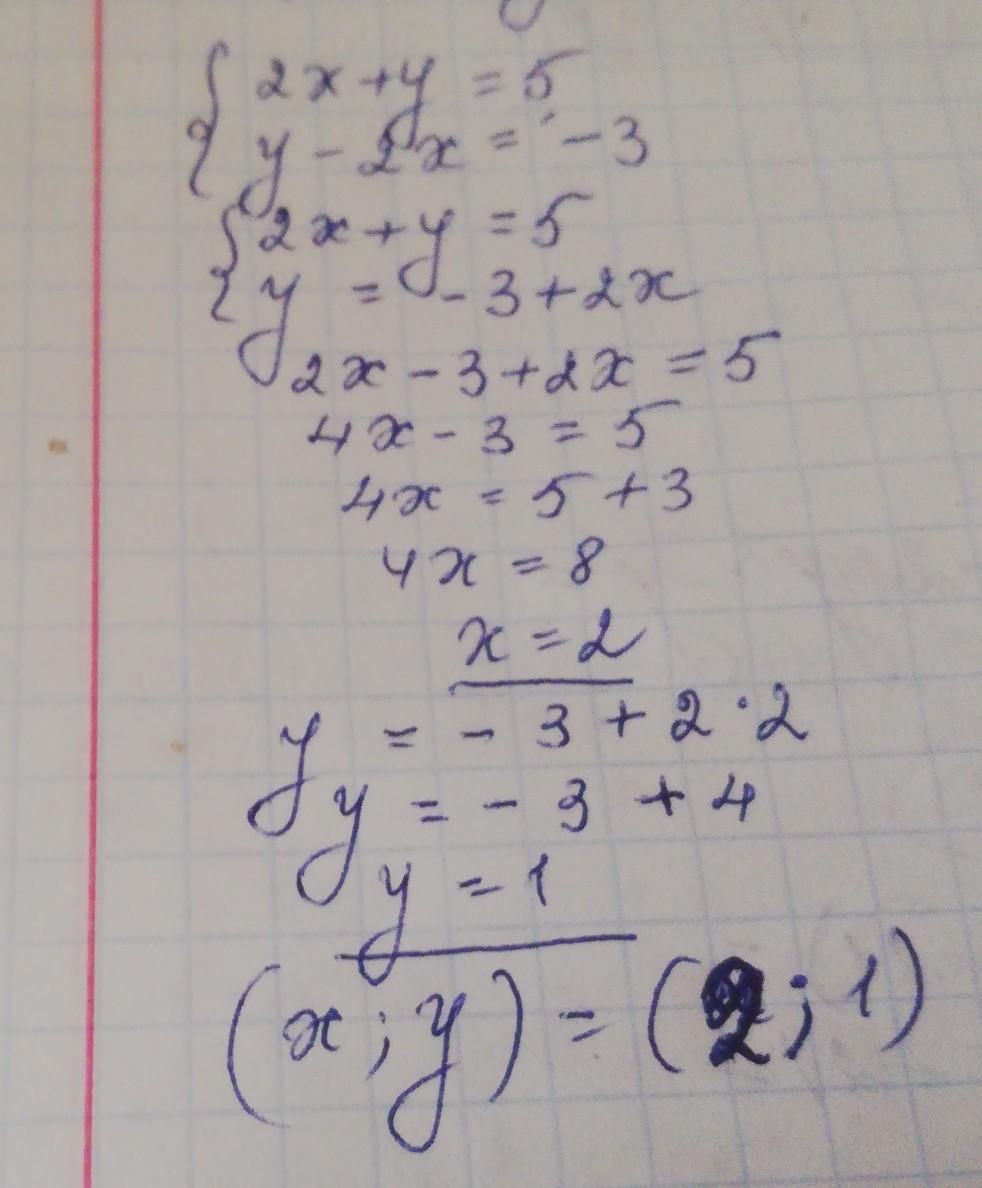 { 2x + y = 5
y - 2x = -3
{ 2x + y = 5
y = -3 + 2x
2x - 3 + 2x = 5
4x - 3 = 5
4x = 5 + 3
4x = 8
x = 2
y = -3 + 2 · 2
y = -3 + 4
y = 1
(x ; y) = (2 ; 1)